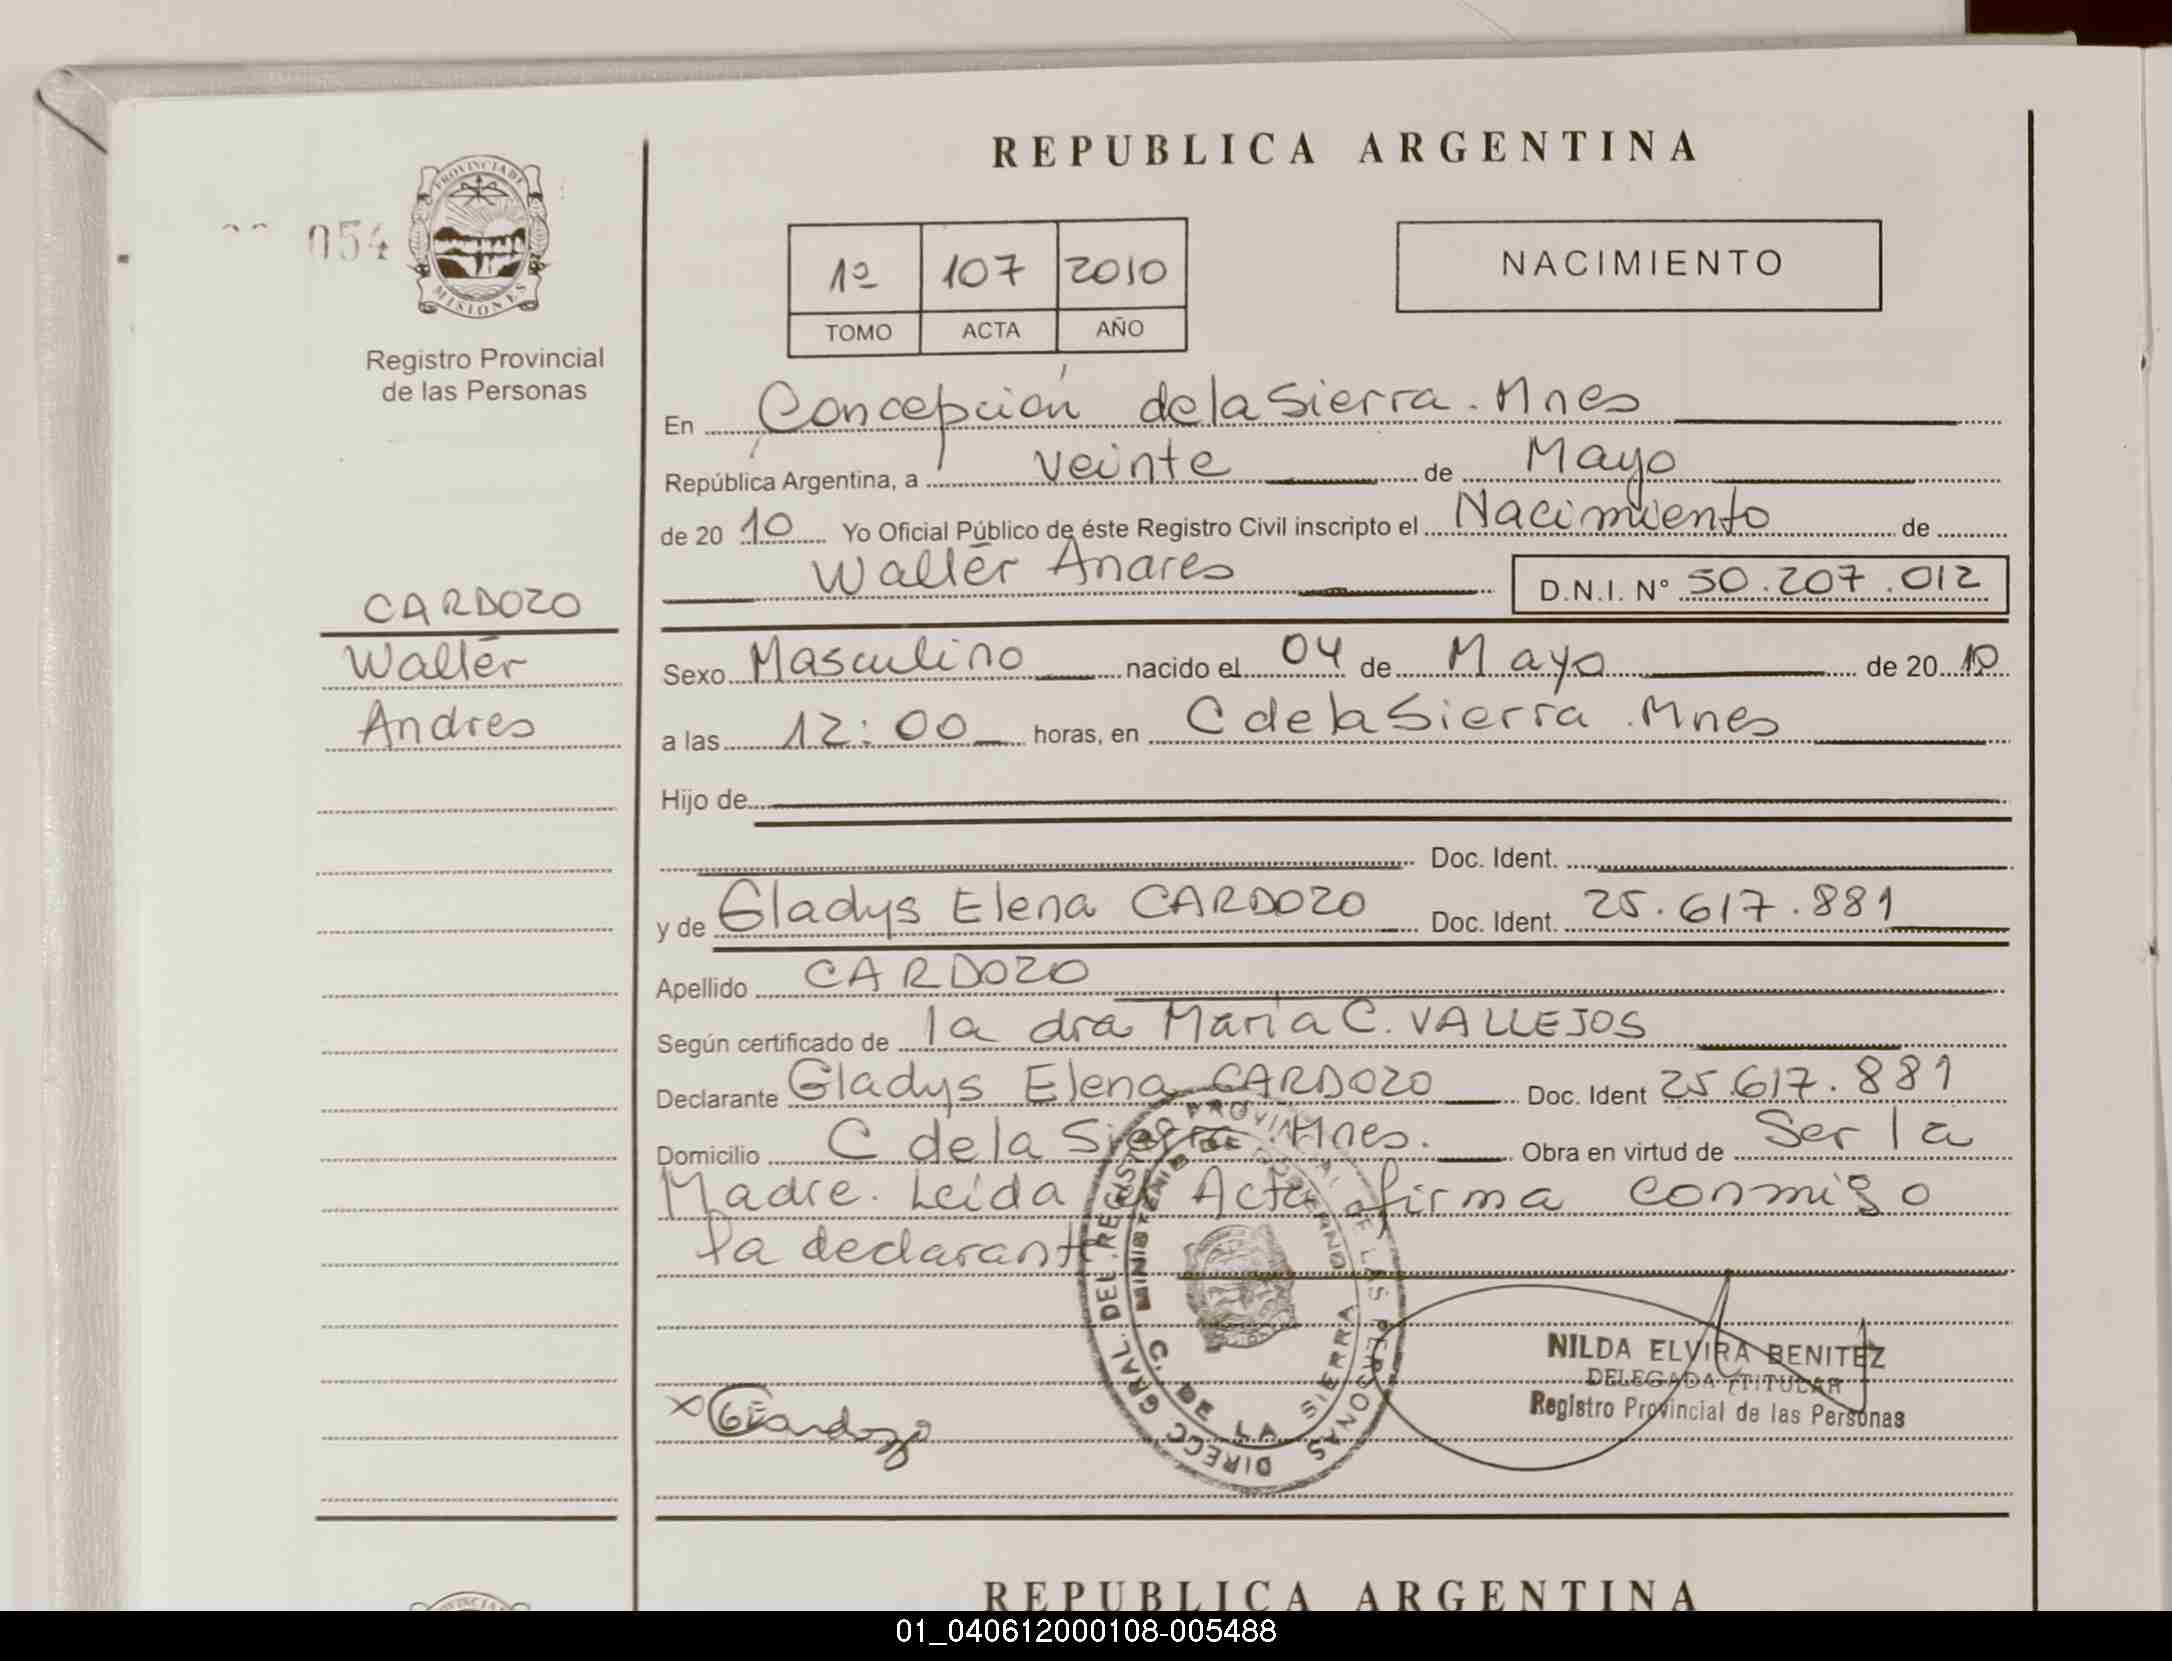 REPUBLICA ARGENTINA
054
PROVINCIA DE
MISIONES
Registro Provincial
de las Personas
1º 107 2010
TOMO ACTA AÑO
NACIMIENTO
En Concepción de la Sierra. Mnes
República Argentina, a veinte de Mayo
de 2010 Yo Oficial Público de éste Registro Civil inscripto el Nacimiento de
Walter Andres D.N.I. Nº 50.207.012
CARDOZO
Walter
Andres
Sexo Masculino nacido el 04 de Mayo de 2010
a las 12:00 horas, en C de la Sierra. Mnes
Hijo de
Doc. Ident.
y de Gladys Elena CARDOZO Doc. Ident. 25.617.881
Apellido CARDOZO
Según certificado de la dra Maria C. VALLEJOS
Declarante Gladys Elena CARDOZO Doc. Ident 25.617.881
Domicilio C de la Sierra. Mnes. Obra en virtud de Ser la
Madre. Leida el Acta firma conmigo
la declarante
DIRECC. GRAL. DEL REGISTRO PROVINCIAL DE LAS PERSONAS
MINISTERIO DE GOBIERNO
C. DE LA SIERRA
x GECardozo
NILDA ELVIRA BENITEZ
DELEGADA TITULAR
Registro Provincial de las Personas
REPUBLICA ARGENTINA
01_040612000108-005488